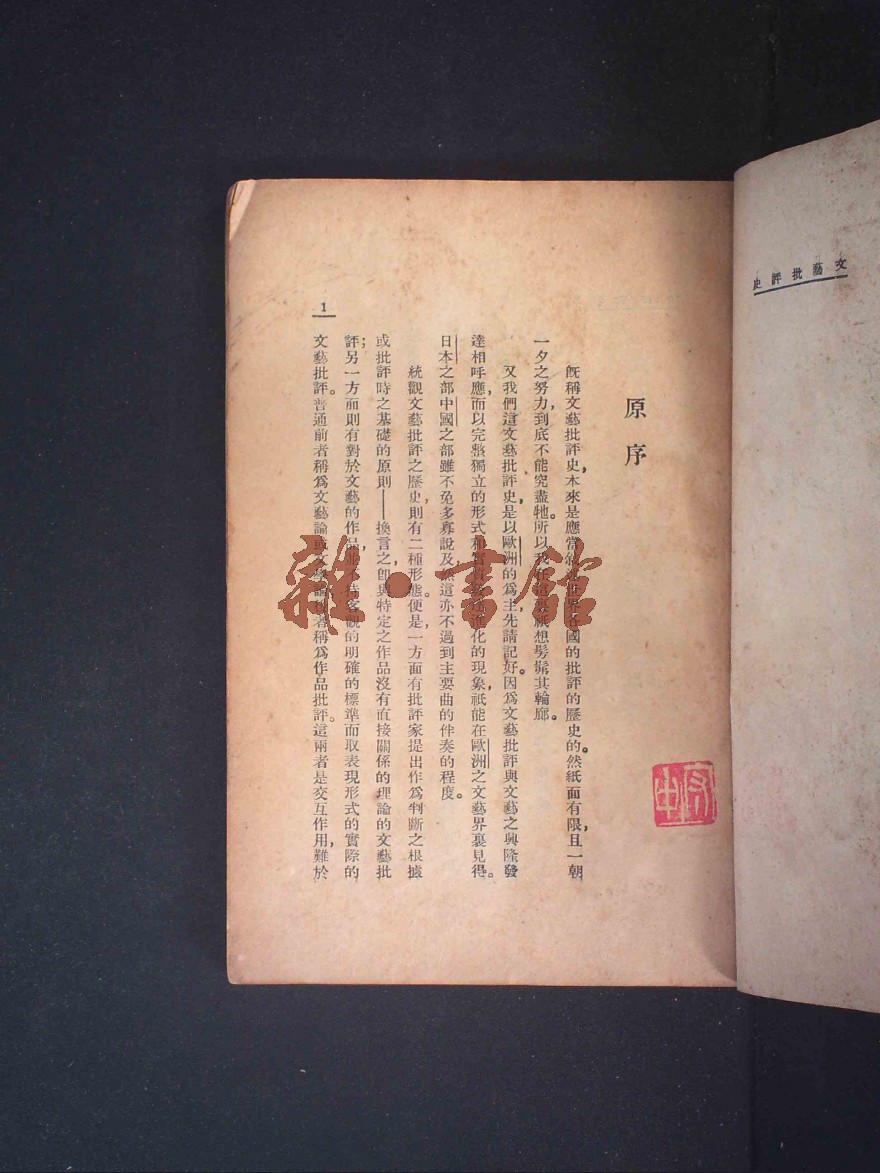 文藝批評史
原序
既稱文藝批評史，本來是應當敘述世界各國的批評的歷史的。然紙面有限，且一朝
一夕之努力，到底不能究盡牠。所以我在這裏祇想髣髴其輪廓。
又我們這文藝批評史，是以歐洲的爲主，先請記好。因爲文藝批評與文藝之興隆發
達相呼應，而以完整獨立的形式和實質 進化的現象，祇能在歐洲之文藝界裏見得。
日本之部中國之部雖不免多寡說及，然這亦不過到主要曲的伴奏的程度。
統觀文藝批評之歷史，則有二種形態。便是，一方面有批評家提出作爲判斷之根據
或批評時之基礎的原則——換言之，卽與特定之作品沒有直接關係的理論的文藝批
評；另一方面則有對於文藝的作品，並不持客觀的明確的標準而取表現形式的實際的
文藝批評。普通前者稱爲文藝論或文學論，後者稱爲作品批評。這兩者是交互作用，難於
1
雜·書館